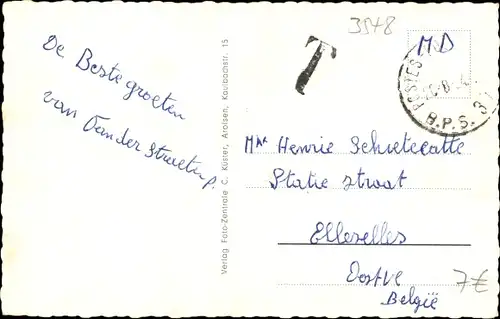 3548
De Beste groeten
van Vander Straeten P.
Verlag Foto-Zentrale C. Küster, Arolsen, Kaulbachstr. 15
T
M D
POSTES
B.P.S. 3
Mme Henrie Schietecatte
Statie straat
Ellezelles
Oostvl
België
7€